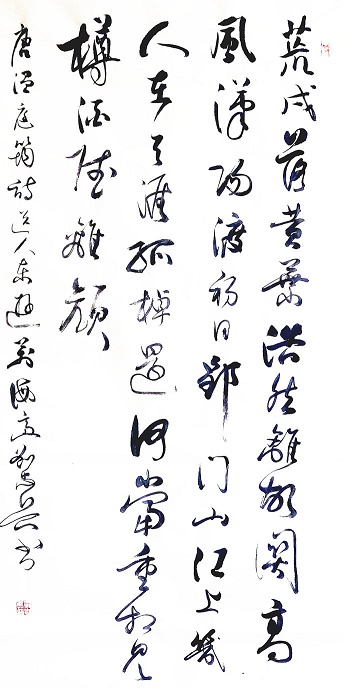 荒戍落黄葉浩然離故關高
風漢陽渡初日郢门山江上幾
人在天涯孤棹還何當重相見
樽酒慰離顔
唐温庭筠詩送人東遊書